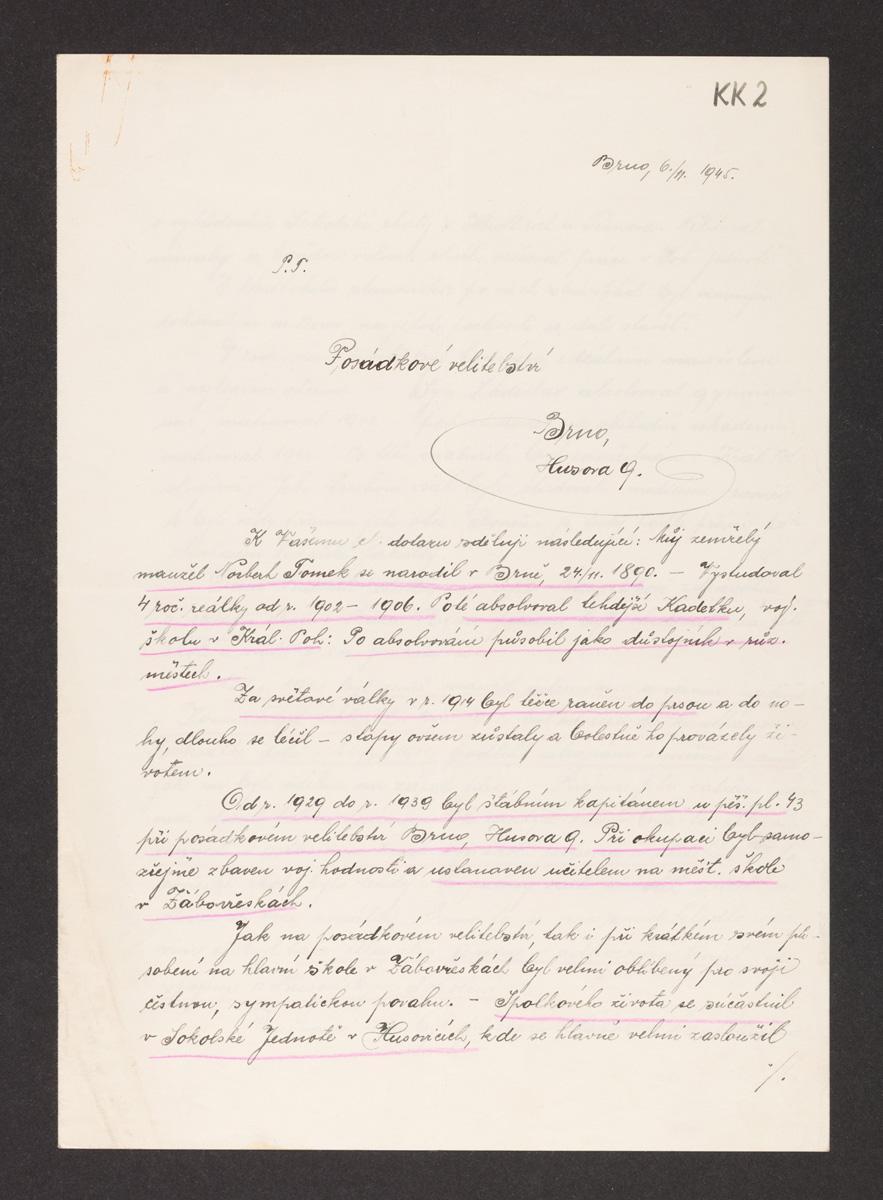 KK 2
Brno, 6./11. 1945.
P.T.
Posádkové velitelství
Brno,
Husova 9.
K Vašemu dotazu sděluji následující: Můj zemřelý
manžel Norbert Tomek se narodil v Brně, 24/11. 1890. – Vystudoval
4 roč. reálky od r. 1902 – 1906. Poté absolvoval tehdejší Kadetku, voj.
školu v Král. Poli: Po absolvování působil jako důstojník v růz.
městech.
Za světové války v r. 1914 byl těžce raněn do prsou a do no-
hy, dlouho se léčil – stopy ovšem zůstaly a bolestně ho provázely ži-
votem.
Od r. 1929 do r. 1939 byl štábním kapitánem u pěš. pl. 43
při posádkovém velitelství Brno, Husova 9. Při okupaci byl samo-
zřejmě zbaven voj. hodnosti a ustanoven učitelem na měšť. škole
v Žabovřeskách.
Jak na posádkovém velitelství, tak i při krátkém svém pů-
sobení na hlavní škole v Žabovřeskách byl velmi oblíbený pro svoji
čestnou, sympatickou povahu. – Spolkového života se súčastnil
v Sokolské Jednotě v Husovicích, kde se hlavně velmi zasloužil
./.